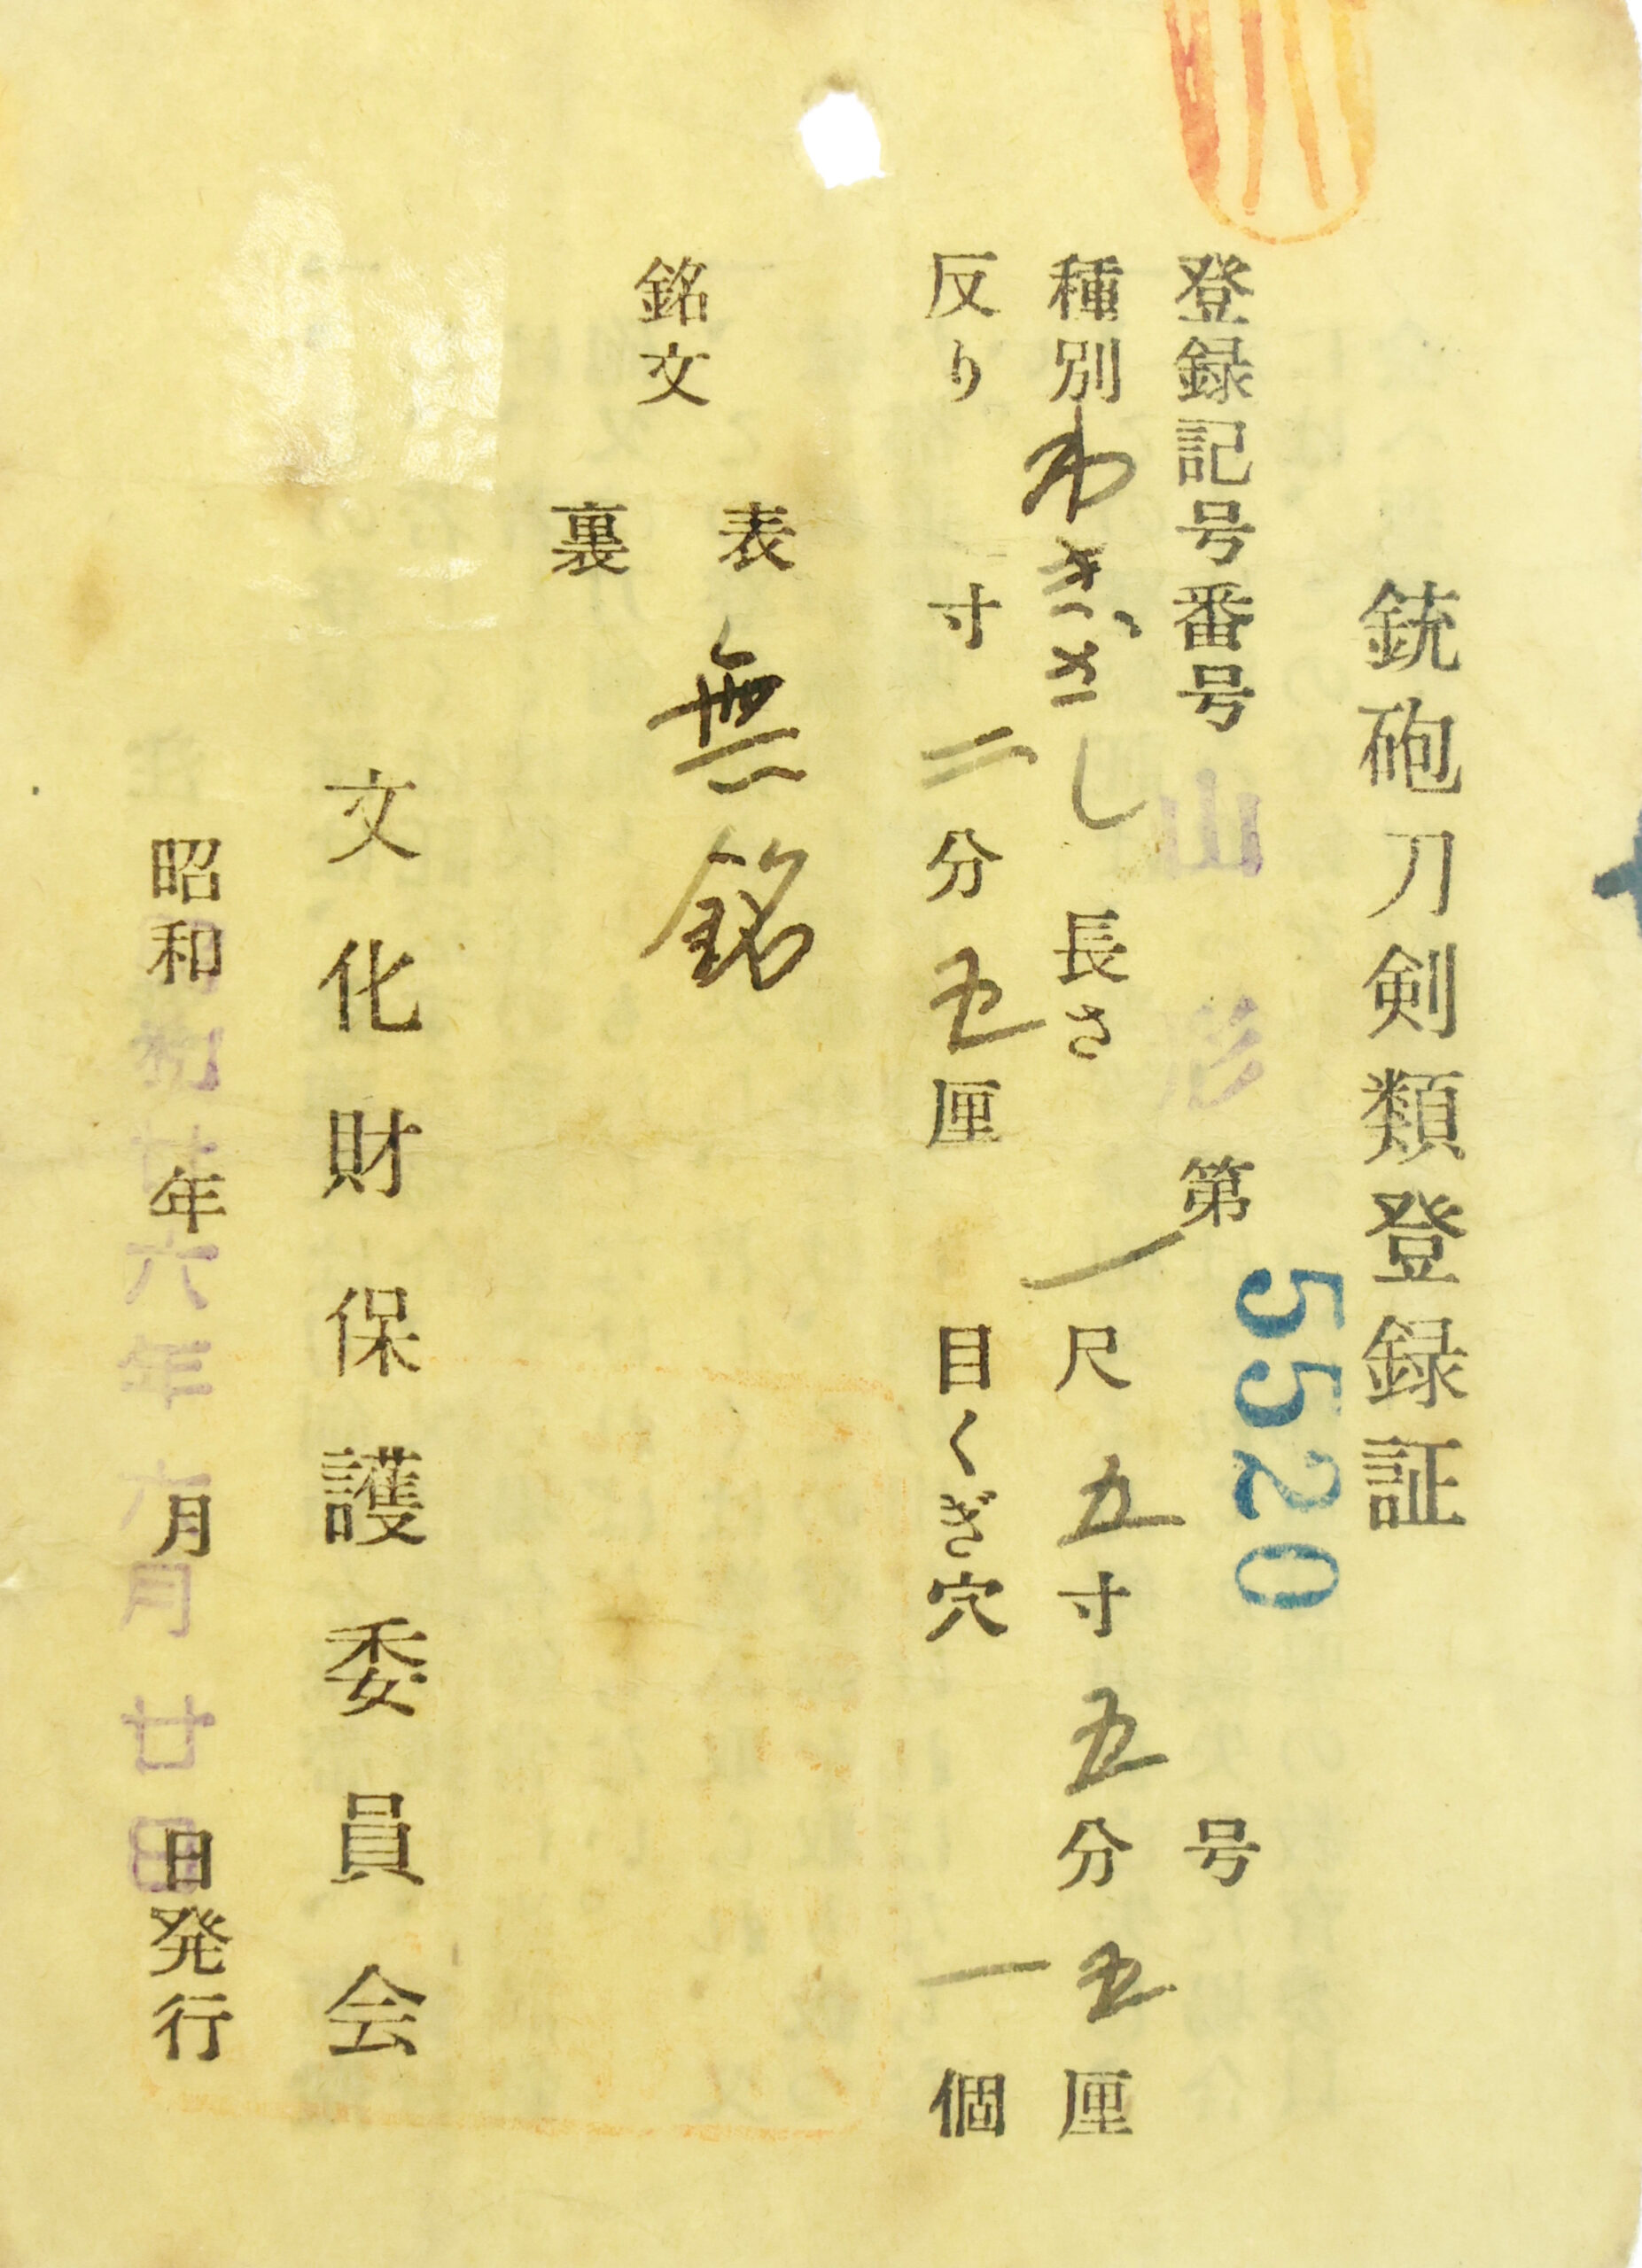 銃砲刀剣類登録証
登録記号番号 山形 第 5520 号
種別 わきざし 長さ 一尺五寸五分五厘
反り 寸二分五厘 目くぎ穴 一個
銘文
表 無銘
裏
文化財保護委員会
昭和 年 月 日発行
昭和廿六年六月廿日